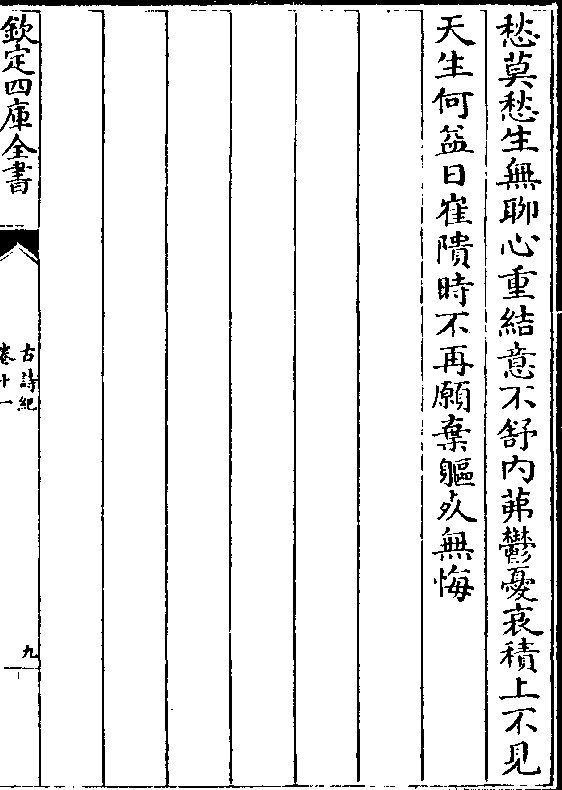 愁莫愁生無聊心重結意不舒内茀鬱憂哀積上不見
天生何益日崔隤時不再願棄軀死無悔
欽定四庫全書
古詩紀
卷十一
九